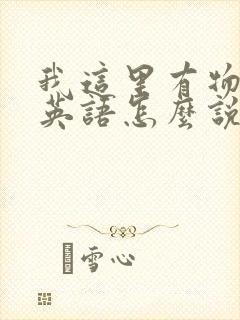 我這里有物
英語怎麼說
雪心